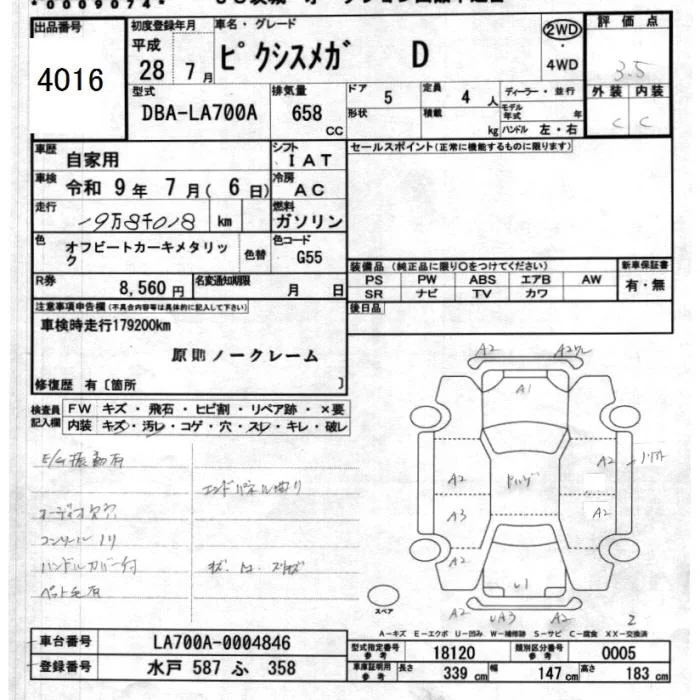 *0009074*
出品番号
4016
初度登録年月
平成
28年7月
車名・グレード
ピクシスメガ D
2WD
・
4WD
評価点
3.5
外装 内装
C C
型式
DBA-LA700A
排気量
658
CC
ドア
5
形状
定員
4人
積載
kg
ディーラー・並行
モデル年式 年
ハンドル 左・右
車歴
自家用
シフト
IAT
セールスポイント(正常に機能するものに限ります)
車検
令和 9年 7月( 6日)
冷房
AC
走行
km
燃料
ガソリン
色
オフビートカーキメタリック
色替
色コード
G55
R券
8,560円
名変通知期限
月 日
装備品 (純正品に限り〇をつけてください)
PS PW ABS エアB AW
SR ナビ TV カワ
新車保証書
有・無
後日品
注意事項申告欄(不具合内容等は具体的に記入して下さい)
車検時走行179200km
原則ノークレーム
修復歴 有〔箇所 〕
検査員記入欄
FW キズ・飛石・ヒビ割・リペア跡・×要
内装 キズ・汚レ・コゲ・穴・スレ・キレ・破レ
E/G振動有
エンドパネル曲り
コンソールノリ
ハンドルカバー付
ペット毛有
A2
A1
A2
A2
A2
A3
A2
A2
U1
A2
UA3
A2
スペア
A-キズ E-エクボ U-凹み W-補修跡 S-サビ C-腐食 XX-交換済
車台番号
LA700A-0004846
登録番号
水戸 587 ふ 358
型式指定番号
参考
18120
類別区分番号
参考
0005
車庫証明用
参考
長さ 339 cm
幅 147 cm
高さ 183 cm